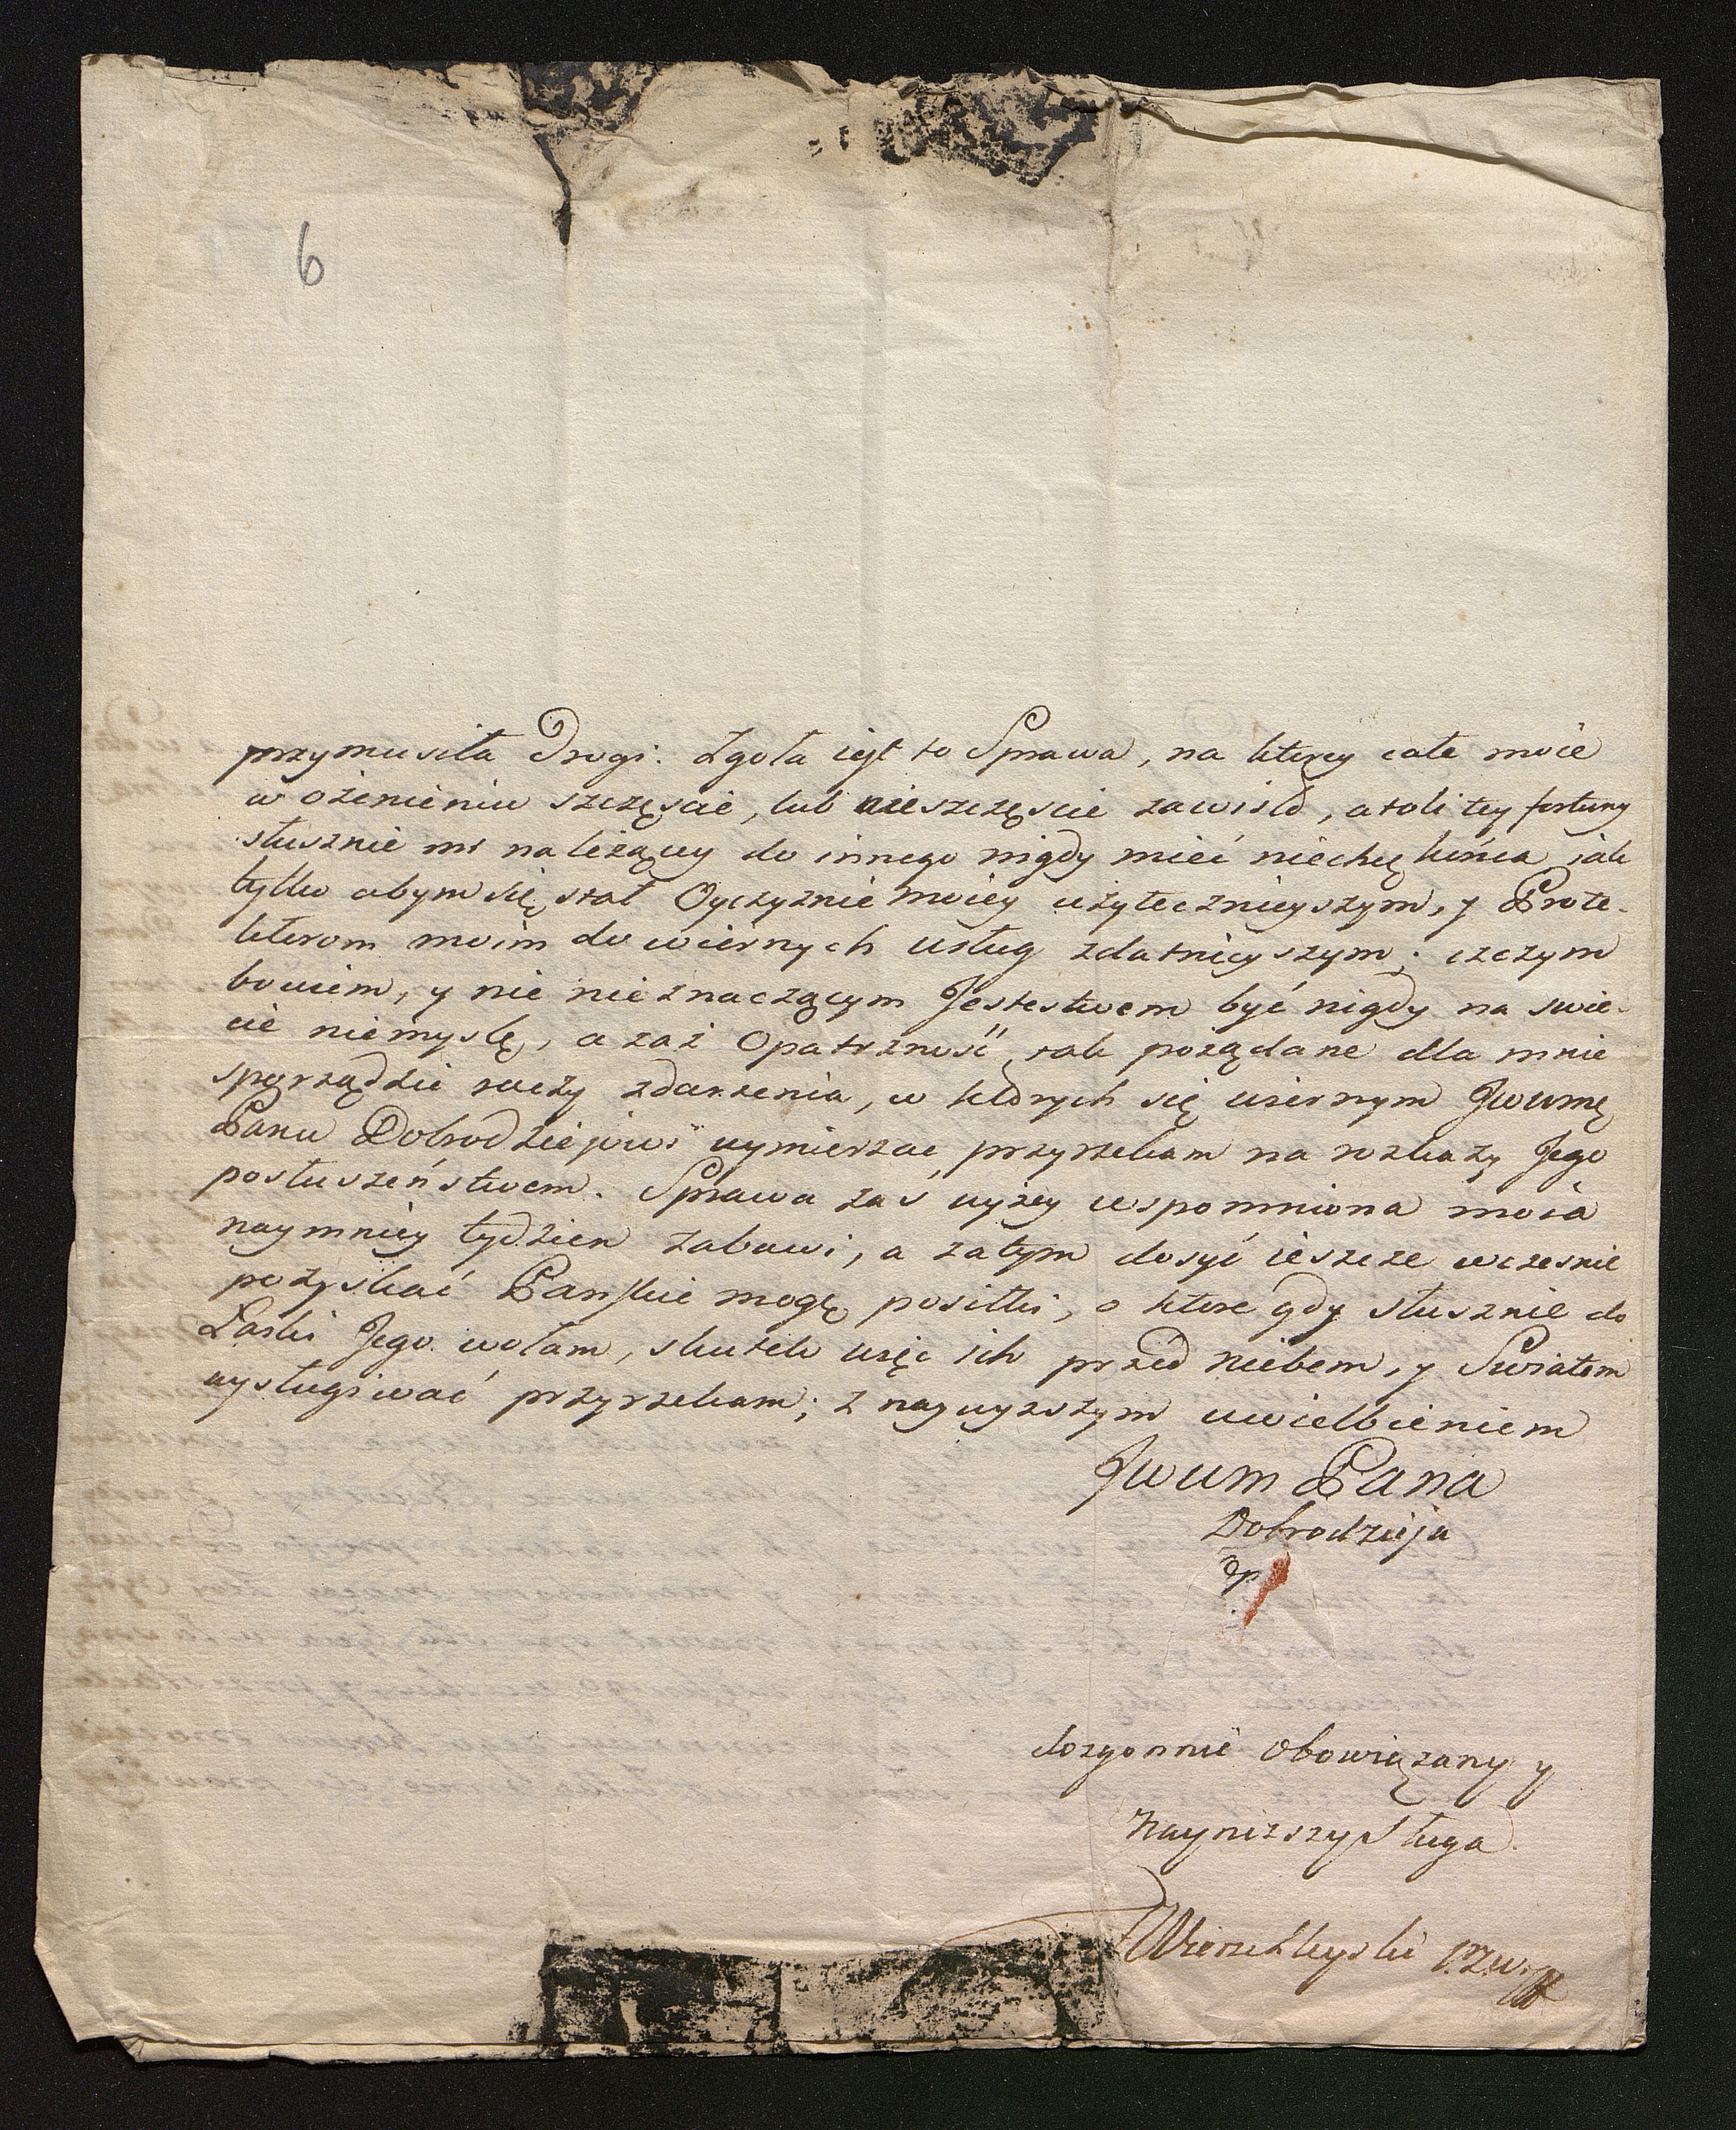 6
przymusiła Drogi. Zgoła iest to Sprawa, na ktorey całe moie
w ożenieniu szczęscie, lub nieszczęscie zawisło, atoli tey fortuny
słusznie mi należącey do innego nigdy mieć niechcę końca iak
tylko abym się stał Oyczyznie moiey użytecznieyszym, y Prote-
ktorom moim do wiernych usług zdatnieyszym; czczym
bowiem, y nic nieznaczącym Jestestwem być nigdy na swie-
cie niemyslę, a zaż Opatrzność tak pożądane dla mnie
sporządzić raczy zdarzenia, w ktorych się wiernym Jwwmę
Panu Dobrodziejowi wymierzac przyrzekam na rozkazy Jego
posłuszeństwem. Sprawa zaś wyżey wspomniona moia
naymniey tydzien zabawi, a zatym dosyć ieszcze wczesnie
pozyskać Panskie mogę posiłki, o ktore gdy słusznie do
Łaski Jego wołam, skutek więc ich przed niebem, y Swiatem
wysługiwać przyrzekam; z naywyzszym uwielbieniem
Jwwm Pana
Dobrodzieja
dozgonnie obowiązany y
Nayniższy Sługa